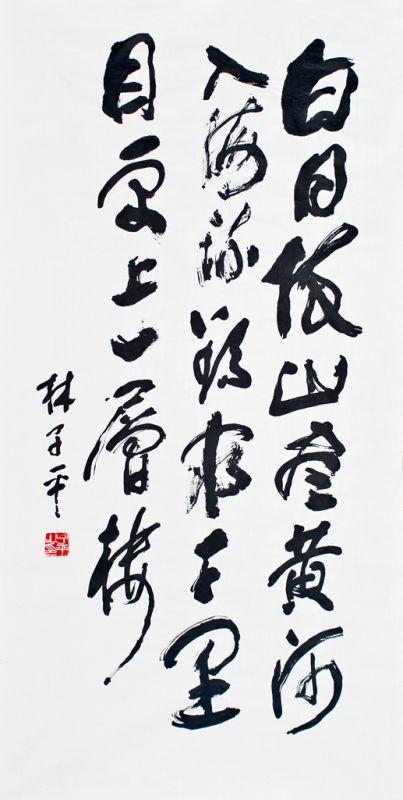 白日依山尽黄河
入海流欲穷千里
目更上一層楼
林子平